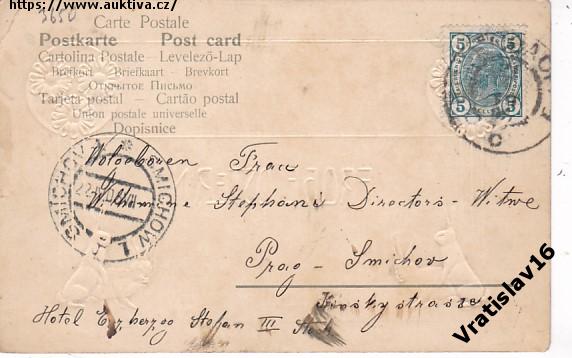 https://www.aktiva.cz/
3650
Carte Postale
Postkarte Post card
Cartolina Postale - Levelező-Lap
Brefkort - Briefkaart - Brevkort
Открытое Письмо
Tarjeta postal - Cartão postal
Union postale universelle
Dopisnice
5 5
5 5
SMICHOV 1
SMICHOW 1
Frau
Stephani Directors-Witwe
Prag-Smichov
Kinsky strasse
Hotel Erzherzog Stefan III Stock
Vratislav16